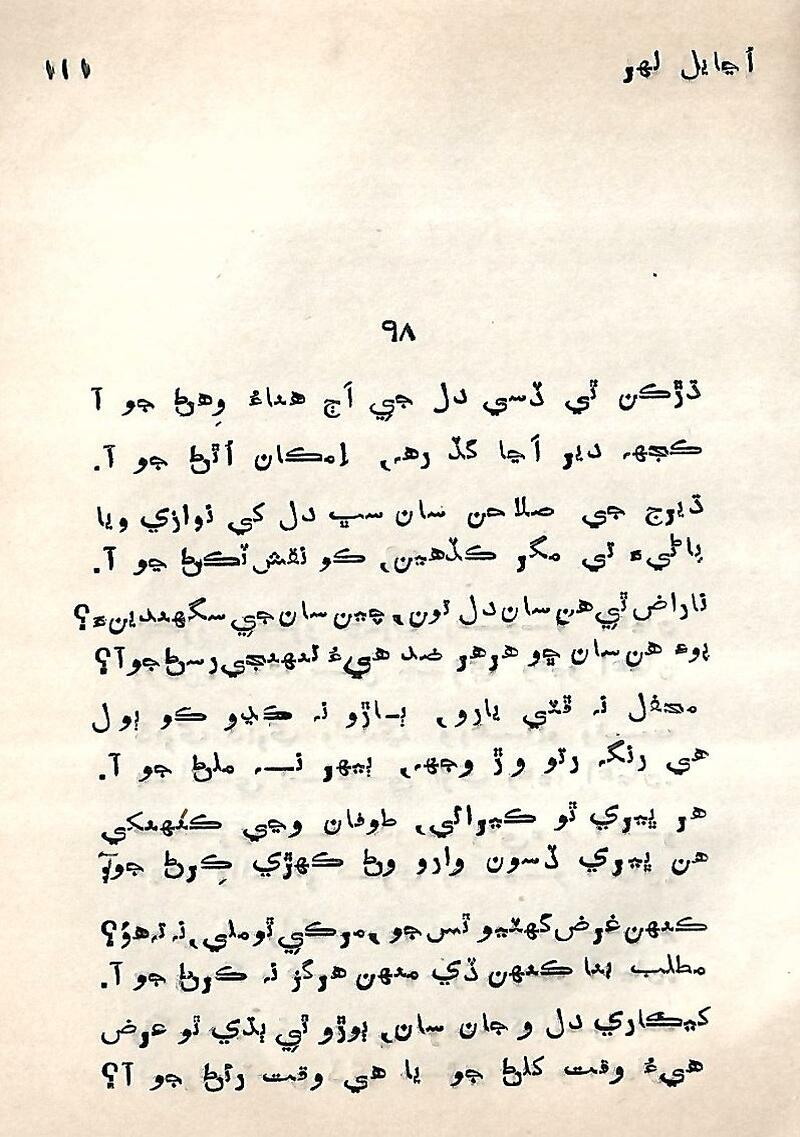 اُڃايل لهر
١١١
٩٨
ڌڙڪن ٿي ڏسي دل جي اَڄ هٿاءُ وِهڻ جو آ
ڪجهه دير اَڃا گڏ رهه، اِمڪان اُٿڻ جو آ.
ڌيرج جي صلاحن سان سڀ دل کي نوازي ويا
پاڻيءَ تي مگر ڪڏهين، ڪو نقش ٽڪڻ جو آ.
ناراض ٿي هن سان دل تون، چين سان جي سگهندينءَ؟
پوءِ هن سان ڇو هر هر ضد هيءُ تنهنجي رسڻ جو آ؟
محفل نه ڦٽي يارو، ٻاڙو نه ڪڍو ڪو ٻول
هي رنگ رتو وڙ وڃهه، ٻيهر نه ملڻ جو آ.
هر ڀيري ٿو ڪيرائي، طوفان وڃي ڪنهنکي
هن ڀيري ڏسون وارو وڻ ڪهڙي ڪِرڻ جو آ؟
ڪنهن غرض گهٽيو تس جو، مرڪي ٿو ملي، نه ته هوُ؟
مطلب بنا ڪنهن ڏي منهن هرگز نه ڪرڻ جو آ.
کيڪاري دل و جان سان، ٻوڙو ٿي ٻڌي ٿو عرض
هيءُ وقت کلڻ جو يا هي وقت رئڻ جو آ؟